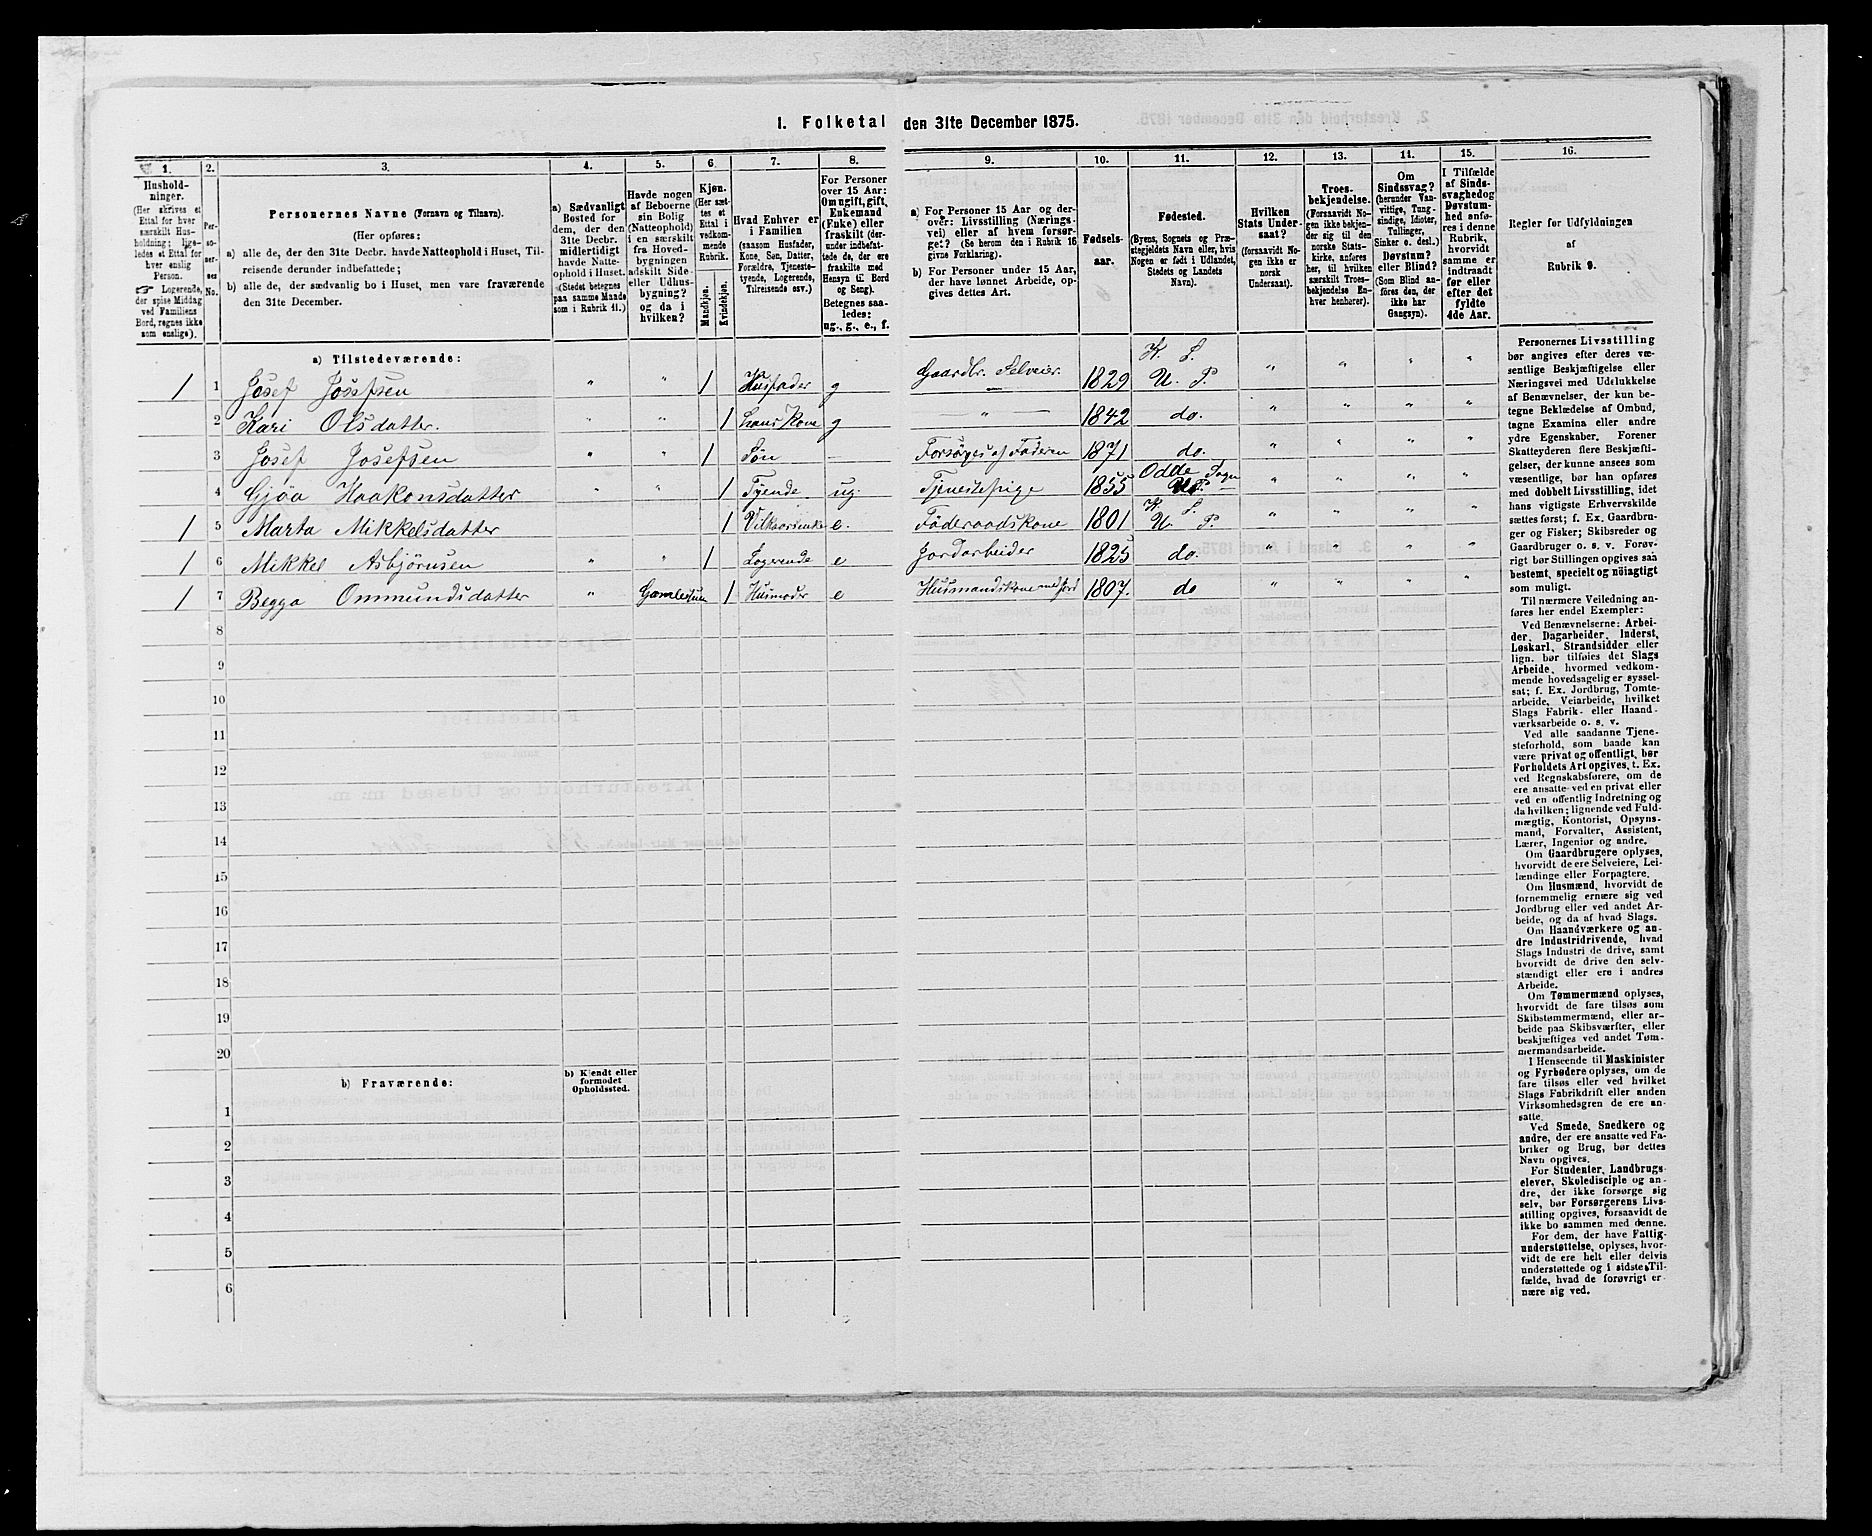 1. Folketal den 31te December 1875.
1. 2. 3. 4. 5. 6. 7. 8. 9. 10. 11. 12. 13. 14. 15. 16.
Hushold-
ninger.
(Her skrives et
Ettal for hver
særskilt Hus-
holdning; lige-
ledes et Ettal for
hver enslig
Person.
☞ Logerende,
der spise Middag
ved Familiens
Bord, regnes ikke
som enslige).
Per-
so-
ner-
nes
No.
Personernes Navne (Fornavn og Tilnavn).
(Her opføres:
a) alle de, der den 31te Decbr. havde Natteophold i Huset, Til-
reisende derunder indbefattede;
b) alle de, der sædvanlig bo i Huset, men vare fraværende
den 31te December.
a) Sædvanligt
Bosted for
dem, der den
31te Decbr.
midlertidigt
havde Natte-
ophold i Huset.
(Stedet betegnes
paa samme Maade
som i Rubrik 11.)
Havde nogen
af Beboerne
sin Bolig
(Natteophold)
i en særskilt
fra Hoved-
bygningen
adskilt Side-
eller Udhus-
bygning?
og da i
hvilken?
Kjøn.
(Her sæt-
tes et
Ettal i
vedkom-
mende
Rubrik.
Mandkjøn.
Kvindekjøn.
Hvad Enhver er
i Familien
(saasom Husfader,
Kone, Søn, Datter,
Forældre, Tjeneste-
tyende, Logerende,
Tilreisende osv.)
For Personer
over 15 Aar:
Om ugift, gift,
Enkemand
(Enke) eller
fraskilt (der-
under indbefat-
tede de, der ere
fraskilte med
Hensyn til Bord
og Seng).
Betegnes saa-
ledes:
ug., g., e., f.
a) For Personer 15 Aar og der-
over: Livsstilling (Nærings-
vei) eller af hvem forsør-
get? (Se herom den i Rubrik 16
givne Forklaring).
b) For Personer under 15 Aar,
der have lønnet Arbeide, op-
gives dettes Art.
Fødsels-
aar.
Fødested.
(Byens, Sognets og Præ-
stegjeldets Navn eller, hvis
Nogen er født i Udlandet,
Stedets og Landets
Navn).
Hvilken
Stats Under-
saat?
(forsaavidt No-
gen ikke er
norsk
Undersaat).
Troes-
bekjendelse.
(Forsaavidt No-
gen ikke bekjen-
der sig til den
norske Stats-
kirke, anføres
her, til hvilken
særskilt Troes-
bekjendelse En-
hver henhører).
Om
Sindssvag?
(herunder Van-
vittige, Tung-
sindige, Idioter,
Tullinger,
Sinker o. desl.)
Døvstum?
eller Blind?
(Som Blind an-
føres den, der
ikke har
Gangsyn).
I Tilfælde
af Sinds-
svaghedog
Døvstum-
hed anfø-
res i denne
Rubrik,
hvorvidt
samme er
indtraadt
før eller
efter det
fyldte
4de Aar.
Regler før Udfyldningen
af
Rubrik 9.
a) Tilstedeværende:
1 1 Josef Josefsen " " 1 Husfader g Gaardbr. Selveier. 1829 K. S. U. P. " " " "
2 Kari Olsdatter. " " 1 hans Kone g — " — 1842 do. " " " "
3 Josef Josefsen " " 1 Søn — Forsørges af Faderen 1871 do. " " " "
4 Gjøa Haakonsdatter " " 1 Tyende ug. Tjenestepige 1855 Odde Sogn U.P. " " " "
1 5 Marta Mikkelsdatter 1 e. Føderaadskone 1801 K. S. U. P. " " " "
1 6 Mikkel Asbjørnsen " " 1 Logerende e Jordarbeider 1825 do. " " " "
1 7 Begga Ommundsdatter " Gamlestuen 1 Husmoder e Husmandskone med Jord 1807. do " " " "
8
9
10
11
12
13
14
15
16
17
18
19
20
b) Fraværende:
b) Kjendt eller
formodet
Opholdssted.
1
2
3
4
5
6
Personernes Livsstilling
bør angives efter deres væ-
sentlige Beskjæftigelse eller
Næringsvei med Udelukkelse
af Benævnelser, der kun be-
tegne Beklædelse af Ombud,
tagne Examina eller andre
ydre Egenskaber. Forener
Skatteyderen flere Beskjæfti-
gelser, der kunne ansees som
væsentlige, bør han opføres
med dobbelt Livsstilling, idet
hans vigtigste Erhvervskilde
sættes først; f. Ex. Gaardbru-
ger og Fisker; Skibsreder og
Gaardbruger o. s. v. Forøv-
rigt bør Stillingen opgives saa
bestemt, specielt og nöiagtigt
som muligt.
Til nærmere Veiledning an-
føres her endel Exempler:
Ved Benævnelserne: Arbei-
der, Dagarbeider, Inderst,
Løskarl, Strandsidder eller
lign. bør tilføies det Slags
Arbeide, hvormed vedkom-
mende hovedsagelig er syssel-
sat; f. Ex. Jordbrug, Tomte-
arbeide, Veiarbeide, hvilket
Slags Fabrik- eller Haand-
værksarbeide o. s. v.
Ved alle saadanne Tjene-
steforhold, som baade kan
være privat og offentligt, bør
Forholdets Art opgives, t. Ex.
ved Regnskabsførere, om de
ere ansatte ved en privat eller
ved en offentlig Indretning og
da hvilken; lignende ved Fuld-
mægtig, Kontorist, Opsyns-
mand, Forvalter, Assistent,
Lærer, Ingeniør og andre.
Om Gaardbrugere oplyses,
hvorvidt de ere Selveiere, Lei-
lændinge eller Forpagtere.
Om Husmænd, hvorvidt de
fornemmelig ernære sig ved
Jordbrug eller ved andet Ar-
beide, og da af hvad Slags.
Om Haandværkere og an-
dre Industridrivende, hvad
Slags Industri de drive, samt
hvorvidt de drive den selv-
stændigt eller ere i andres
Arbeide.
Om Tømmermænd oplyses,
hvorvidt de fare tilsøs som
Skibstømmermænd, eller ar-
beide paa Skibsværfter, eller
beskjæftiges ved andet Tøm-
mermandsarbeide.
I Henseende til Maskinister
og Fyrbødere oplyses, om de
fare tilsøs eller ved hvilket
Slags Fabrikdrift eller anden
Virksomhedsgren de ere an-
satte.
Ved Smede, Snedkere og
andre, der ere ansatte ved Fa-
briker og Brug, bør dettes
Navn opgives.
For Studenter, Landbrugs-
elever, Skoledisciple og an-
dre, der ikke forsørge sig
selv, bør Forsørgerens Livs-
stilling opgives, forsaavidt de
ikke bo sammen med denne.
For dem, der have Fattig-
understøttelse, oplyses, hvor-
vidt de ere helt eller delvis
understøttede og i sidste Til-
fælde, hvad de forøvrigt er-
nære sig ved.